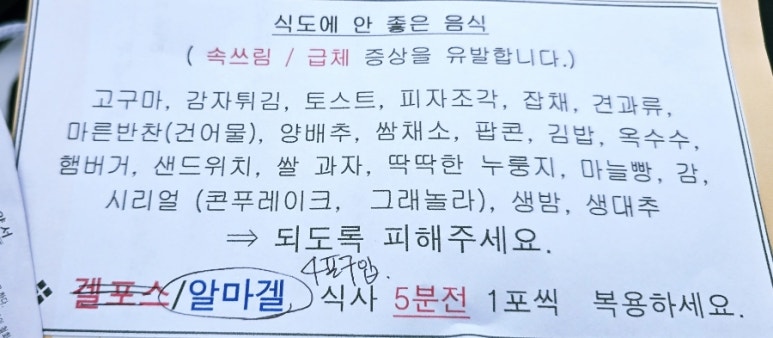 식도에 안 좋은 음식
( 속쓰림 / 급체 증상을 유발합니다.)
고구마, 감자튀김, 토스트, 피자조각, 잡채, 견과류,
마른반찬(건어물), 양배추, 쌈채소, 팝콘, 김밥, 옥수수,
햄버거, 샌드위치, 쌀 과자, 딱딱한 누룽지, 마늘빵, 감,
시리얼 (콘푸레이크, 그래놀라), 생밤, 생대추
⇒ 되도록 피해주세요.
4포구입.
❖ 겔포스/알마겔 식사 5분전 1포씩 복용하세요.